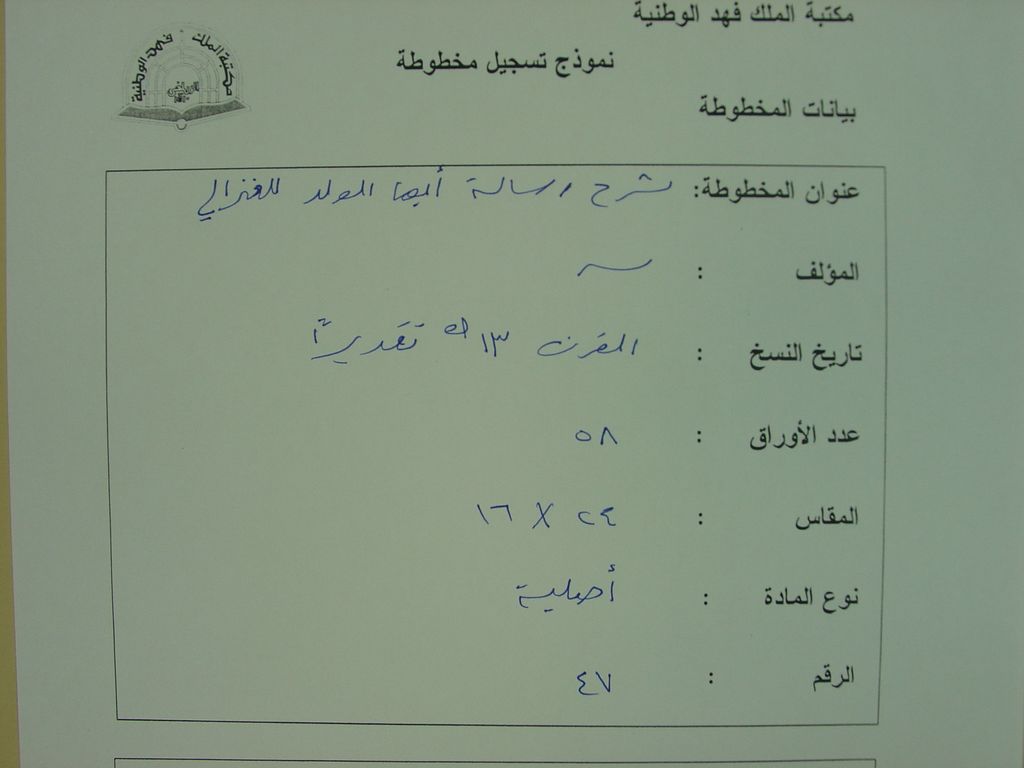 مكتبة الملك فهد الوطنية
نموذج تسجيل مخطوطة
مكتبة الملك فهد الوطنية
الرياض
بيانات المخطوطة
عنوان المخطوطة: شرح رسالة أيها الولد للغزالي
المؤلف :
تاريخ النسخ : القرن ١٣هـ تقديراً
عدد الأوراق : ٥٨
المقاس : ٢٤ X ١٦
نوع المادة : أصلية
الرقم : ٤٧